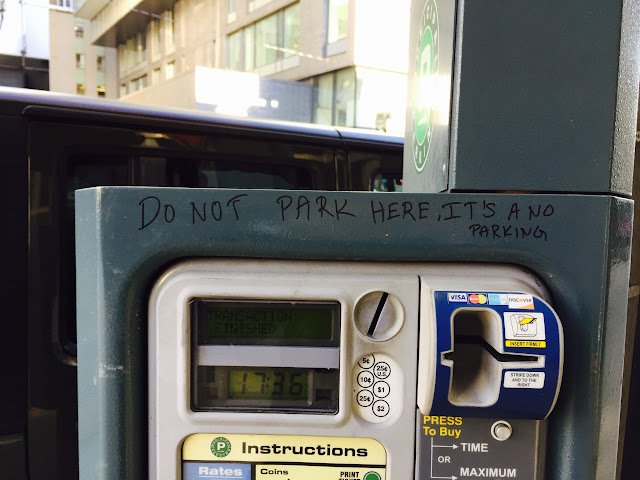 P
DO NOT PARK HERE, IT'S A NO
PARKING
TRANSACTION
FINISHED
17:36
5¢
25¢
U.S.
10¢
$1
25¢
$2
VISA
DISCOVER
INSERT FIRMLY
STRIPE DOWN
AND TO THE
RIGHT
PRESS
To Buy
TIME
OR
MAXIMUM
P
Instructions
Rates
Coins
PRINT